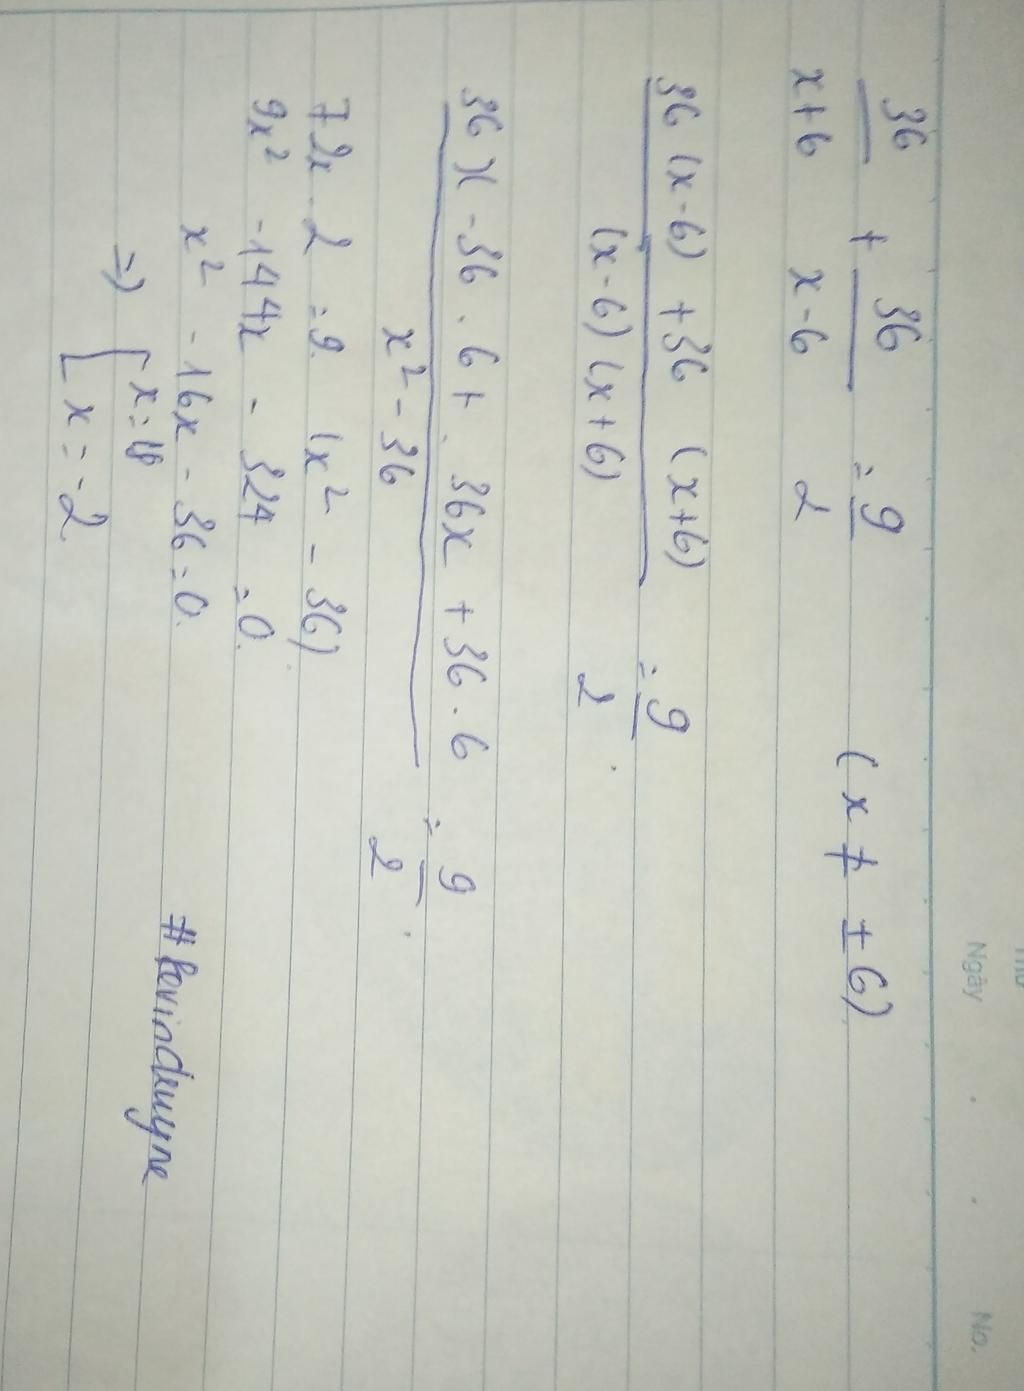 Ngày No.
36/(x+6) + 36/(x-6) = 9/2 (x ≠ ± 6)
(36 (x-6) + 36 (x+6))/((x-6) (x+6)) = 9/2 .
(36x - 36 . 6 + 36x + 36 . 6)/(x² - 36) = 9/2 .
72x . 2 = 9 (x² - 36)
9x² - 144x - 324 = 0.
x² - 16x - 36 = 0.
=> [ x = 18
x = -2.